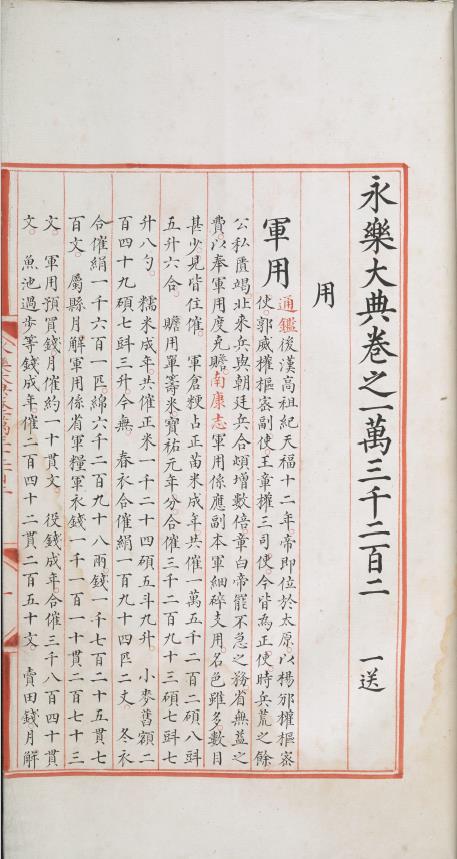 永樂大典卷之一萬三千二百二 一送
用
軍用 通鑑後漢高祖紀天福十二年帝即位於太原以楊邠權樞密
使郭威權樞密副使王章權三司使今皆為正使時兵荒之餘
公私匱竭北來兵與朝廷兵合頓增數倍章白帝罷不急之務省無益之
費以奉軍用度充贍南康志軍用係應副本軍細碎支用名色雖多數目
甚少見皆住催 軍倉粳占正苗米成年共催一萬五千二百二碩八㪷
五升六合 贍用單籌米寶祐元年分合催三千二百九十三碩七㪷七
升八勺 糯米成年共催正米一千二十四碩五㪷九升 小麥舊額二
百四十九碩七㪷三升今無 春衣合催絹一百九十四匹二丈 冬衣
合催絹一千六百一匹綿六千二百九十八兩錢一千七百二十五貫七
百文 屬縣月解軍用係省軍糧軍衣錢一千一百一十貫二百七十三
文 軍用預買錢月催約一十貫文 役錢成年合催三千八百四十貫
文 魚池過步等錢成年催二百四十二貫二百五十文 賣田錢月解